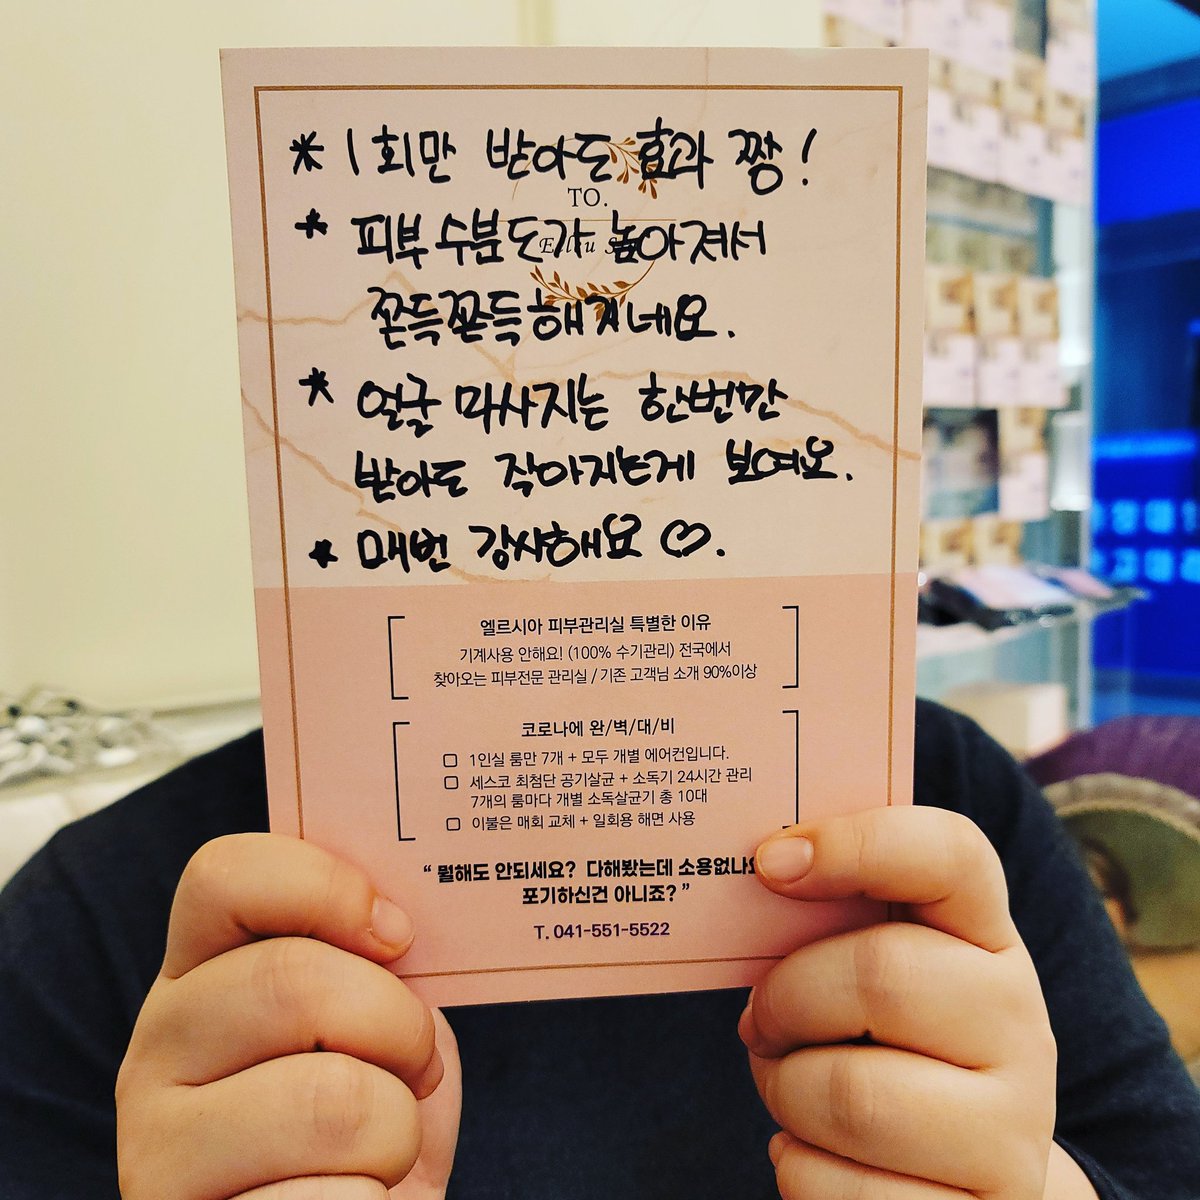 * 1회만 받아도 효과 짱!
TO.
* 피부 수분도가 높아져서
쫀득쫀득해지네요.
* 얼굴 마사지는 한번만
받아도 작아지는게 보여요.
* 매번 감사해요 ♡.
엘르시아 피부관리실 특별한 이유
기계사용 안해요! (100% 수기관리) 전국에서
찾아오는 피부전문 관리실 / 기존 고객님 소개 90%이상
코로나에 완/벽/대/비
□ 1인실 룸만 7개 + 모두 개별 에어컨입니다.
□ 세스코 최첨단 공기살균 + 소독기 24시간 관리
7개의 룸마다 개별 소독살균기 총 10대
□ 이불은 매회 교체 + 일회용 해면 사용
“ 뭘해도 안되세요? 다해봤는데 소용없나요
포기하신건 아니죠? ”
T. 041-551-5522